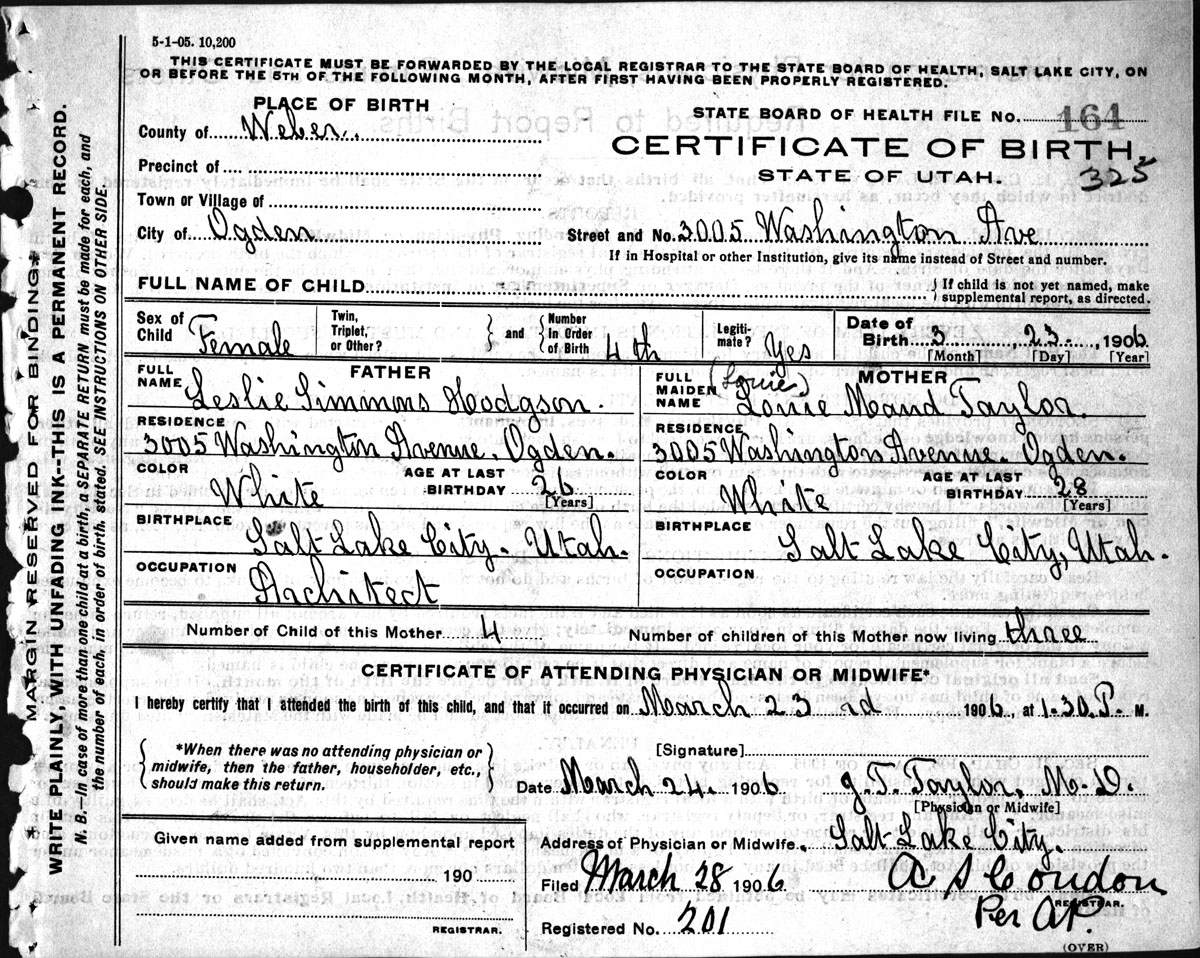 5-1-05. 10,200
THIS CERTIFICATE MUST BE FORWARDED BY THE LOCAL REGISTRAR TO THE STATE BOARD OF HEALTH, SALT LAKE CITY, ON
OR BEFORE THE 5TH OF THE FOLLOWING MONTH, AFTER FIRST HAVING BEEN PROPERLY REGISTERED.
PLACE OF BIRTH
STATE BOARD OF HEALTH FILE No. 164
County of Weber.
CERTIFICATE OF BIRTH
Precinct of
STATE OF UTAH. 325
Town or Village of
City of Ogden Street and No. 3005 Washington Ave
If in Hospital or other Institution, give its name instead of Street and number.
FULL NAME OF CHILD { If child is not yet named, make
supplemental report, as directed.
Sex of Child Female Twin, Triplet, or Other? } and { Number In Order of Birth 4th Legiti-mate? Yes Date of Birth 3 23 1906
[Month] [Day] [Year]
FATHER
FULL NAME Leslie Simmons Hodgson.
RESIDENCE
3005 Washington Avenue. Ogden.
COLOR White AGE AT LAST BIRTHDAY 26 [Years]
BIRTHPLACE Salt Lake City. Utah.
OCCUPATION Architect
MOTHER
(Louie)
FULL MAIDEN NAME Lonie Maud Taylor.
RESIDENCE
3005 Washington Avenue. Ogden.
COLOR White AGE AT LAST BIRTHDAY 28 [Years]
BIRTHPLACE Salt Lake City, Utah.
OCCUPATION
Number of Child of this Mother 4 Number of children of this Mother now living three
CERTIFICATE OF ATTENDING PHYSICIAN OR MIDWIFE*
I hereby certify that I attended the birth of this child, and that it occurred on March 23rd 1906, at 1.30. P. M.
{ *When there was no attending physician or
midwife, then the father, householder, etc.,
should make this return. }
[Signature]
Date March 24. 1906 J. T. Taylor, M.D.
[Physician or Midwife]
Given name added from supplemental report
190
REGISTRAR.
Address of Physician or Midwife, Salt Lake City.
Filed March 28 1906 A S Condon
REGISTRAR.
Registered No. 201 Per A.P.
(OVER)
*** MARGIN RESERVED FOR BINDING ***
WRITE PLAINLY WITH UNFADING INK--THIS IS A PERMANENT RECORD.
N. B.—In case of more than one child at a birth, a SEPARATE RETURN must be made for each, and
the number of each, in order of birth, stated. SEE INSTRUCTIONS ON OTHER SIDE.